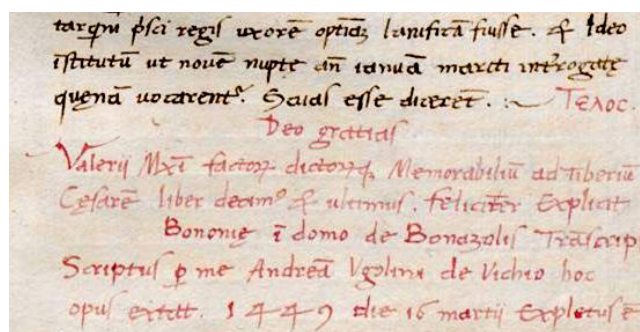 tarqni p̄sci regis uxorē optimā lanificā fuisse. & Ideo
īstitutū ut novē nupte an̄ ianuā mariti int̄rogatę
quęnā vocarent᷑. Scuas esse dicerēt. :~ Τελος
Deo gratias
Valerij Mx̄i factoꝝ dictoꝝq; Memorabiliū ad tiberiū
Cęsarē liber decimꝰ & ultimus. feliciter Explicit
Bononię ī domo de Bonazolis Trāscrip
Scriptus ꝑ me Andreā Vgolini de Vichio hoc
opus 1449 die 16 martij Expletus ē